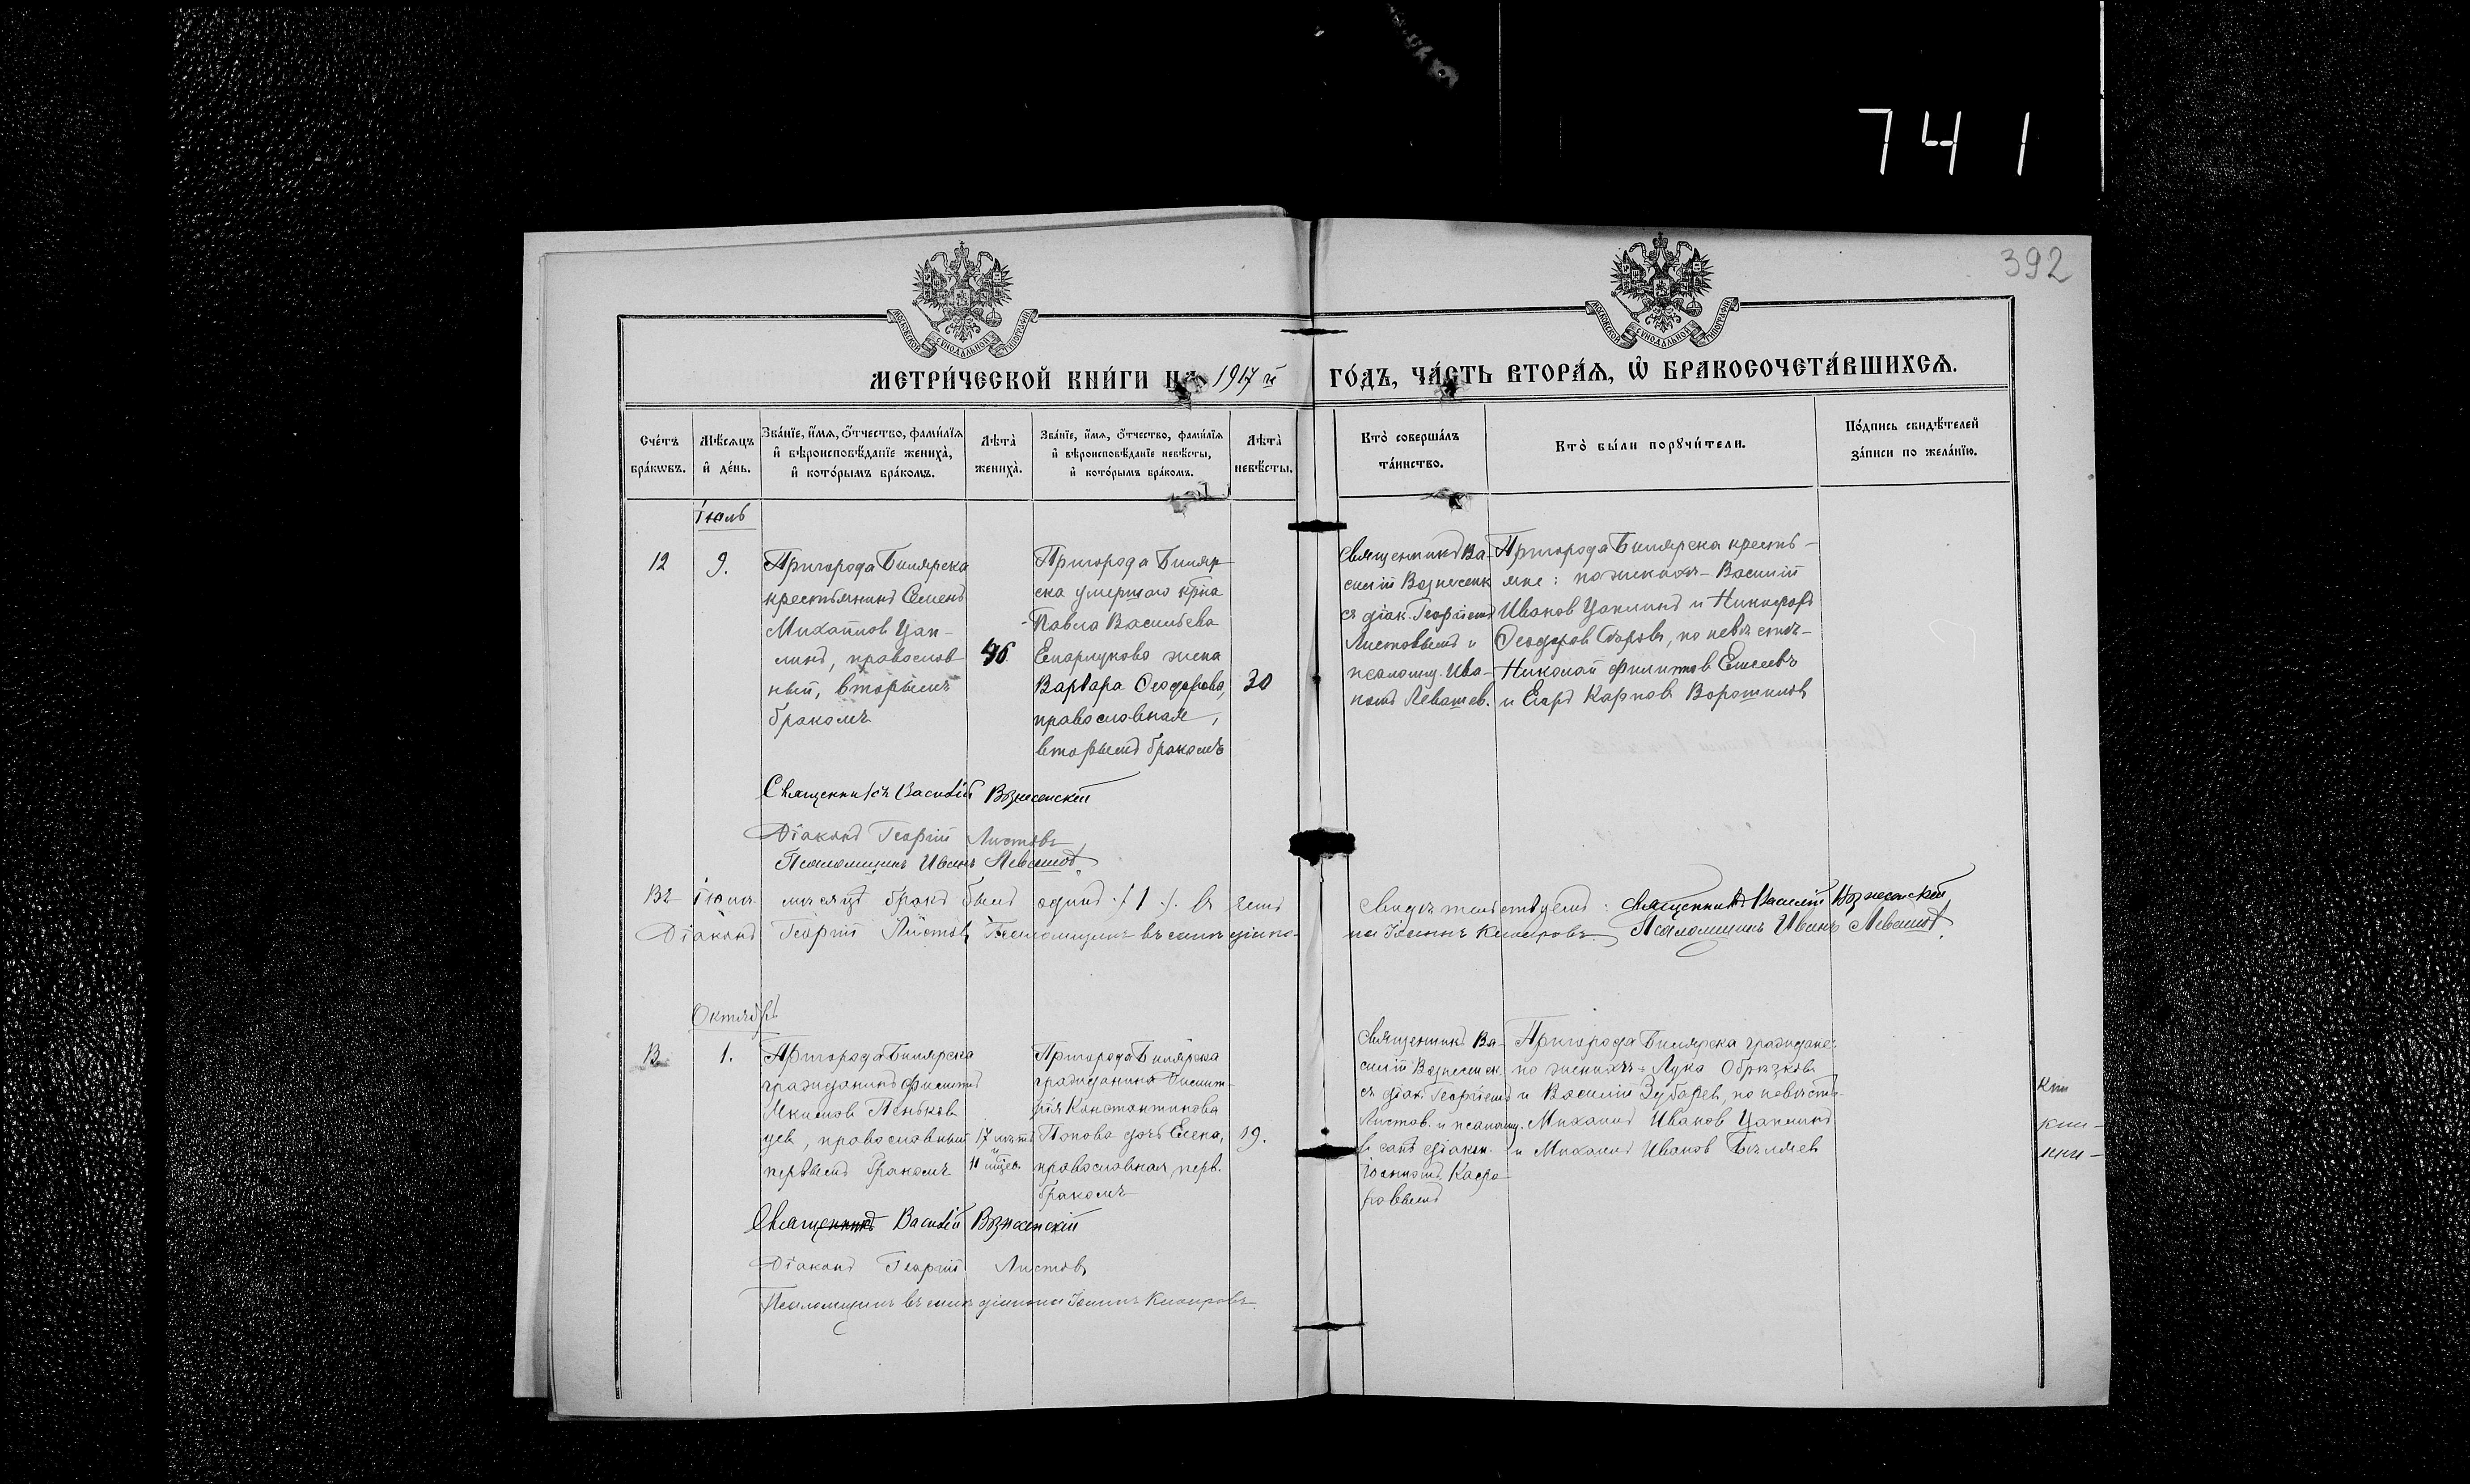 741
392
МОСКОВСКОЙ СѴНОДАЛЬНОЙ ТИПОГРАФІИ
МОСКОВСКОЙ СѴНОДАЛЬНОЙ ТИПОГРАФІИ
МЕТРИ́ЧЕСКОЙ КНИ́ГИ НА 1917 й ГО́ДЪ, ЧА́СТЬ ВТОРА́Ѧ, Ѡ҆ БРАКОСОЧЕТА́ВШИХСѦ.
Сче́тъ бра́кѡвъ.
Мѣ́сѧцъ и҆ де́нь.
Зва́нїе, и҆́мѧ, ѻ҆́тчество, фами́лїѧ
и҆ вѣроисповѣ́данїе жениха̀,
и҆ кото́рымъ бра́комъ.
Лѣта̀ жениха̀.
Зва́нїе, и҆́мѧ, ѻ҆́тчество, фами́лїѧ
и҆ вѣроисповѣ́данїе невѣ́сты,
и҆ кото́рымъ бра́комъ.
Лѣта̀ невѣ́сты.
Кто̀ соверша́лъ та́инство.
Кто̀ бы́ли порꙋчи́тели.
По́дпись свидѣ́телей за́писи по жела́нїю.
Іюль
12
9.
Пригорода Билярска
крестьянинъ Семенъ
Михайлов Цап-
линъ, православ
ный, вторымъ
бракомъ
46
Пригорода Биляр
ска умершаго кр-на
Павла Васильева
жена
Варвара Ѳеодорова,
православная,
вторымъ бракомъ
30
Священникъ Ва-
силій Вознесенск
съ діак. Георгіемъ
Листовымъ и
псаломщ. Ива-
номъ Левашев.
Пригорода Билярска кресть-
яне: по женихѣ - Василій
Иванов Цаплинъ и Никифоръ
Ѳеодоров, по невѣстѣ-
Николай Филиппов Елисеевъ
и Егоръ Карпов Ворошилов
Священникъ Василій Вознесенскій
Діаконъ Георгій Листовъ
Псаломщикъ Иванъ Левашов.
Въ Іюлѣ мѣсяцѣ бракъ былъ одинъ ·/1/. въ чемъ свидѣтельствуемъ: Священникъ Василій Вознесенскій
Діаконъ Георгій Листов Псаломщикъ въ санѣ діако-на Іоаннъ Псаломщикъ Иванъ Левашов.
Октябрь
13
1.
Пригорода Билярска
гражданинъ Филиппъ
Пеньков
цев, православный
первымъ бракомъ
17 лѣтъ
и
11 мѣсяц.
Пригорода Билярска
гражданина Димит-
рія Константинова
Попова дочь Елена,
православная, перв.
бракомъ
19.
Священникъ Ва-
силій Вознесенск.
съ діак. Георгіемъ
Листов. и псаломщ.
въ санѣ діакон.
Іоанномъ
Пригорода Билярска граждане:
по женихѣ - Лука Образков
и Василій Зубарев, по невѣстѣ-
Михаилъ Иванов Цаплинъ
и Михаилъ Иванов Бѣляев
Священникъ Василій Вознесенскій
Діаконъ Георгій Листовъ
Псаломщикъ въ санѣ діакона Іоаннъ